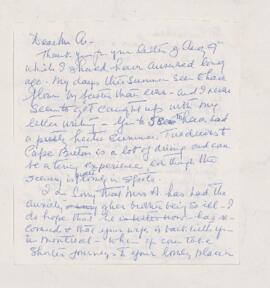 Dear Mr A -
Thank you for your letter of Aug 9
which I should have answered long
ago. My days this summer seem to have
flown by faster than ever - and I never
seem to get caught up with my
letter writing - You to have had
a pretty hectic summer. The drive to
Cape Breton is a lot of driving and can
be a tiring experience even though the
scenery is lovely in spots.
I am sorry that Mrs A. has had the
anxiety of her brother being so ill - I
do hope that he is better now - has re-
covered & that your wife is back with you
in Montreal - when you can take
shorter journeys to your lovely places